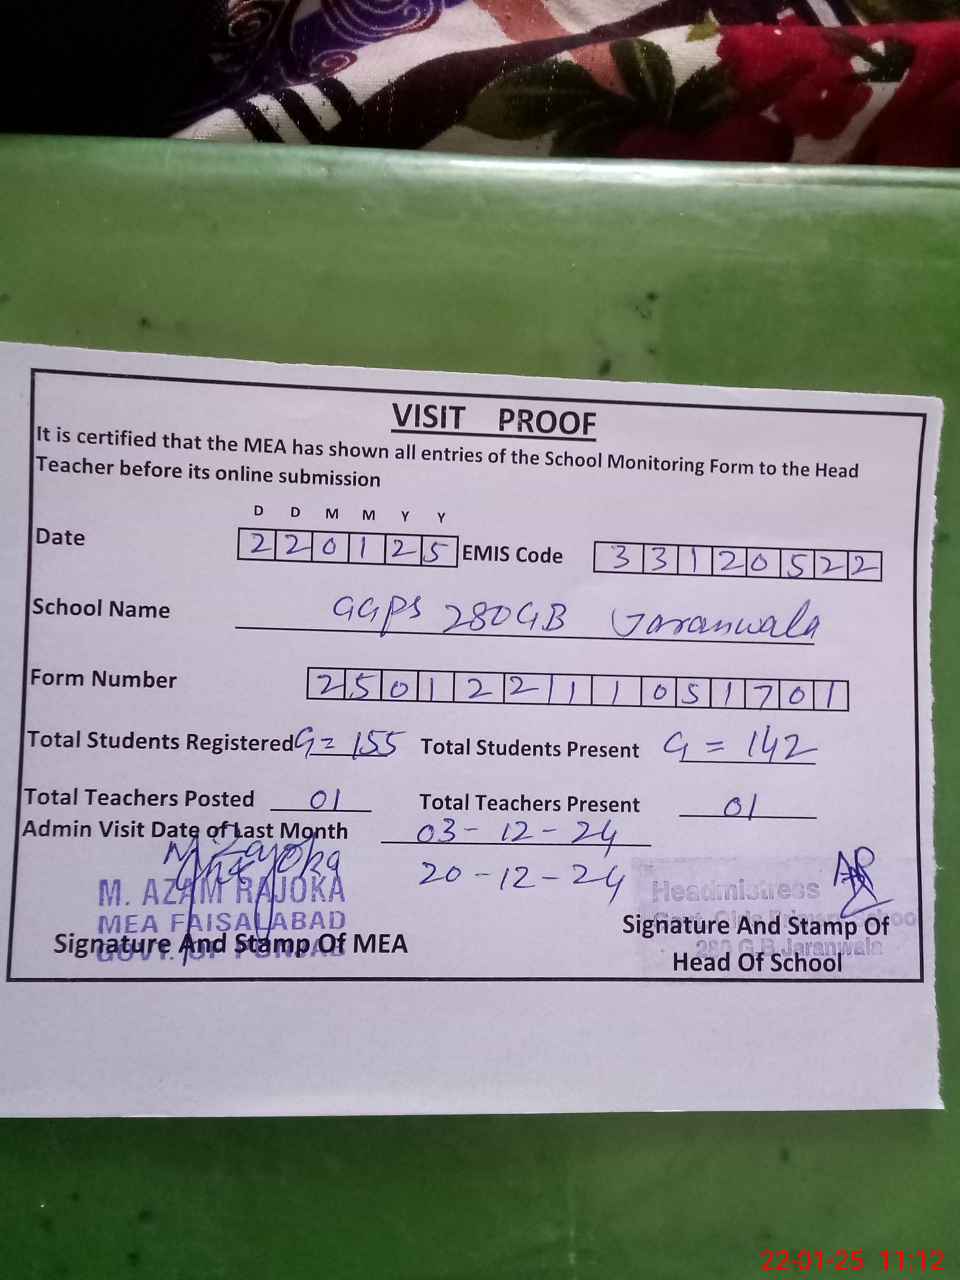 VISIT PROOF
It is certified that the MEA has shown all entries of the School Monitoring Form to the Head
Teacher before its online submission
D D M M Y Y
Date 220125 EMIS Code 33120522
School Name GGPS 280GB Jaranwala
Form Number 25012211051701
Total Students Registered G= 155 Total Students Present G = 142
Total Teachers Posted 01 Total Teachers Present 01
Admin Visit Date of Last Month 03-12-24
20-12-24
M. AZAM RAJOKA
MEA FAISALABAD
GOVT. OF PUNJAB
Signature And Stamp Of MEA
Headmistress
Govt. Girls Primary School
280 G.B Jaranwala
Signature And Stamp Of
Head Of School
22-01-25 11:12